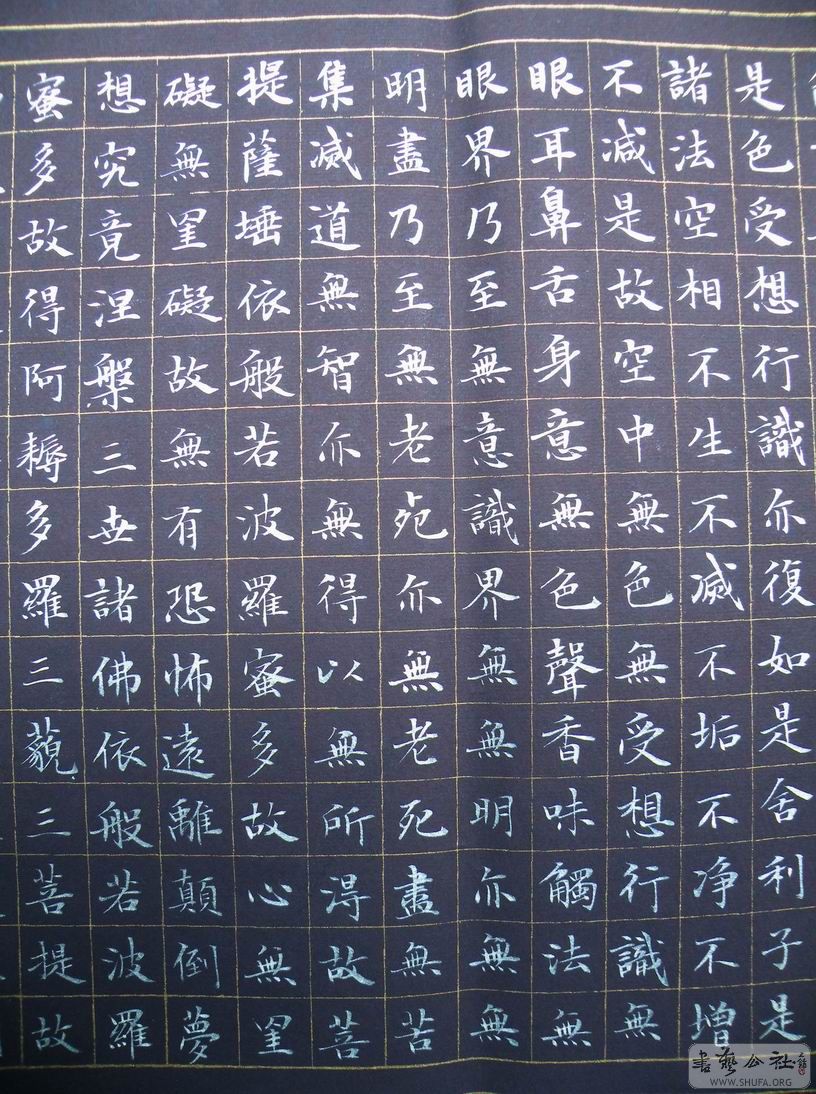 是色受想行識亦復如是舍利子是
諸法空相不生不滅不垢不净不增
不減是故空中無色無受想行識無
眼耳鼻舌身意無色聲香味觸法無
眼界乃至無意識界無無明亦無無
明盡乃至無老死亦無老死盡無苦
集滅道無智亦無得以無所得故菩
提薩埵依般若波羅蜜多故心無罣
礙無罣礙故無有恐怖遠離顛倒夢
想究竟涅槃三世諸佛依般若波羅
蜜多故得阿耨多羅三藐三菩提故
書藝公社
WWW.SHUFA.ORG